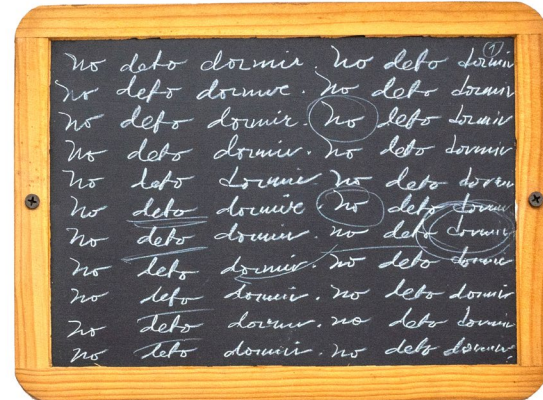 No debo dormir. No debo dormir
No debo dormir. No debo dormir
No debo dormir. No debo dormir
No debo dormir. No debo dormir
No debo dormir No debo dormir
No debo dormir No debo dormir
No debo dormir. no debo dormir
No debo dormir. No debo dormir
No debo dormir. No debo dormir
No debo dormir. no debo dormir
No debo dormir. No debo dormir